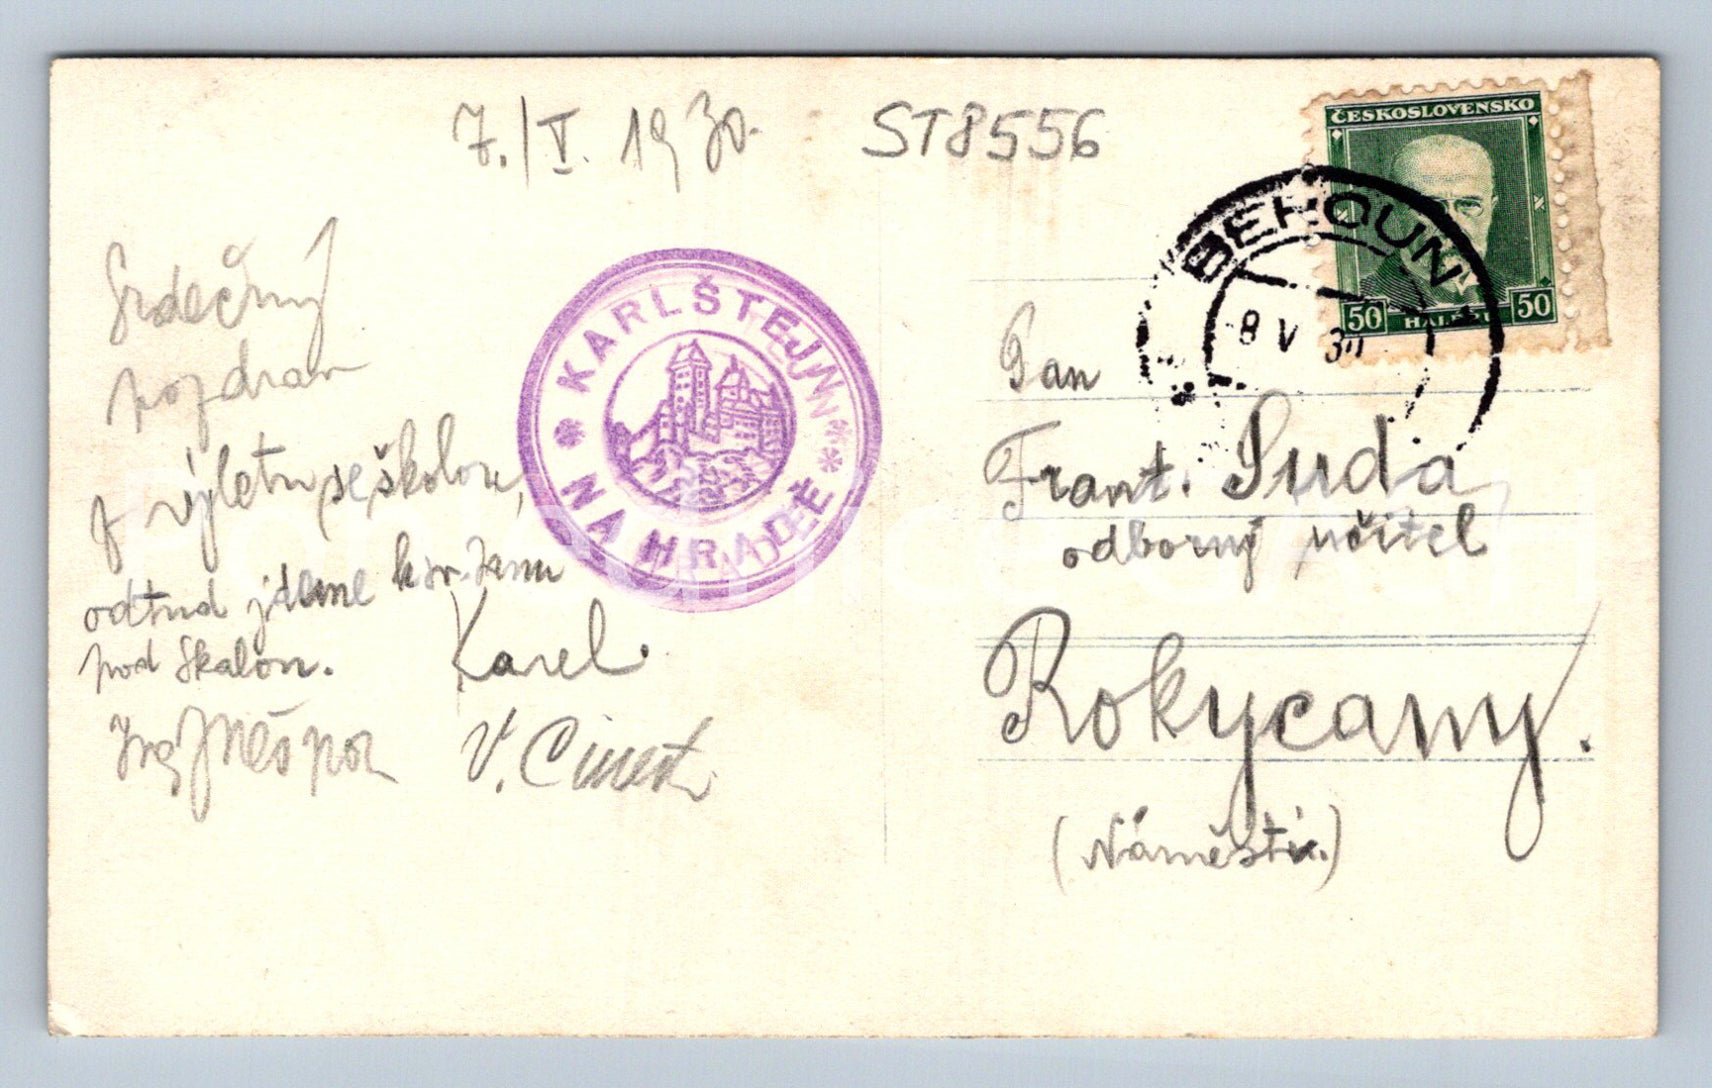 7./V. 1930.
ST8556
Srdečný
pozdrav
z výletu se školou,
odtud jdeme k sv. Janu
pod Skalou.
Karel.
V.
KARLŠTEJN
NA HRADĚ
ČESKOSLOVENSKO
50 HALÉŘŮ 50
BEROUN
8 V 30
Pan
Frant. Suda
odborný učitel
Rokycany.
(Náměstí.)